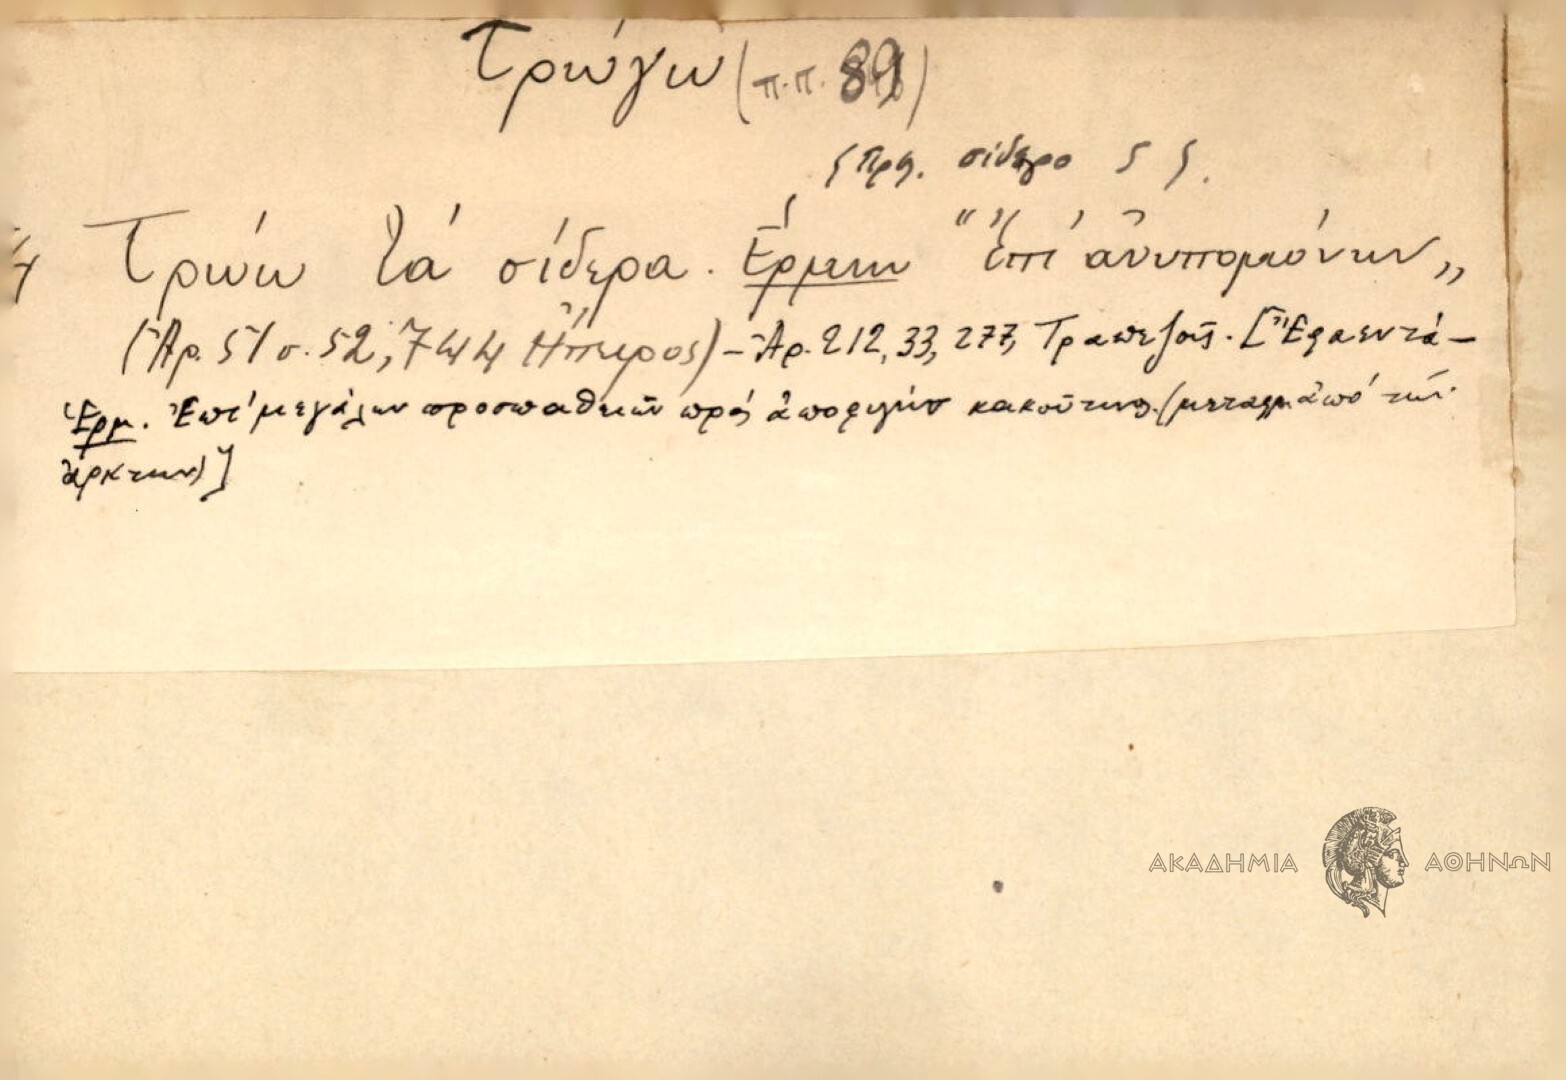 Τρώγω (π.π. 89)
Πρβ. σίδερο 5
Τρώω τά σίδερα. Ἑρμην "Ἐπί ἀνυπομόνων„
(Ἀρ. 51 σ. 52, 744 Ἤπειρος) – Ἀρ. 212, 33, 277, Τραπεζοῦς. [Ἔφαεν τά –
Ἑρμ. Ἐπί μεγάλων προσπαθειῶν πρός ἀποφυγήν κακοῦ τινος. (μεταφ. ἀπό τῶν
ἄρκτων)]
ΑΚΑΔΗΜΙΑ ΑΘΗΝΩΝ